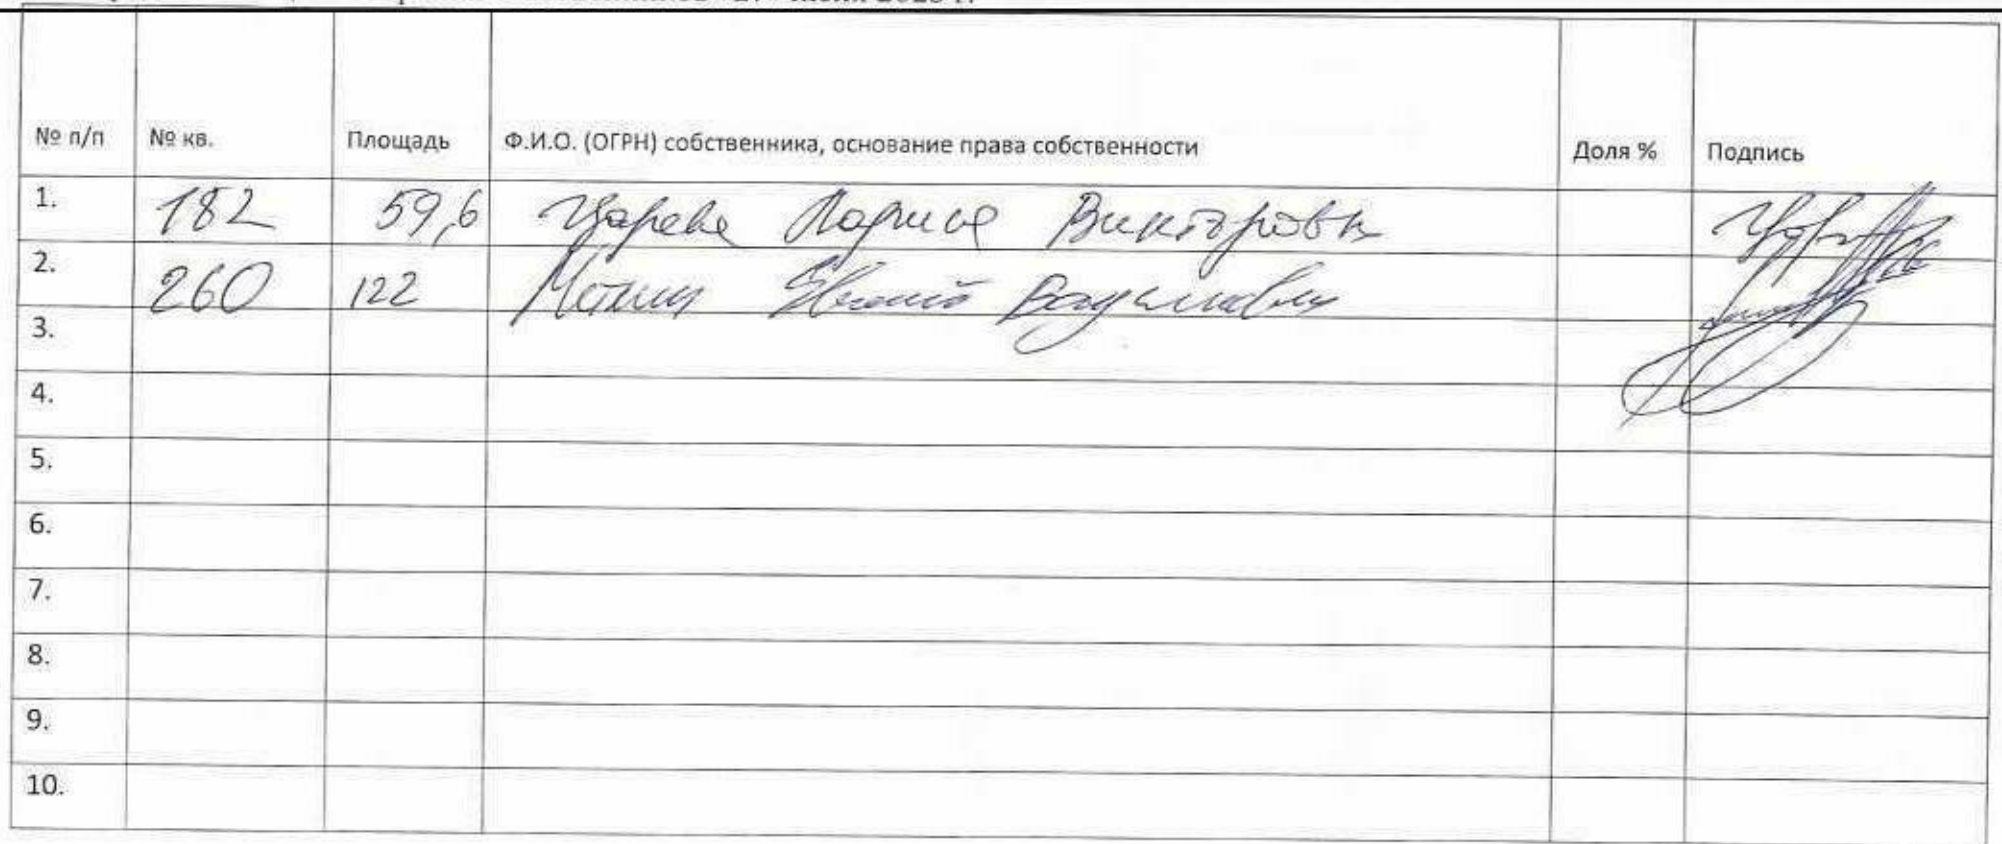 № п/п № кв. Площадь Ф.И.О. (ОГРН) собственника, основание права собственности Доля % Подпись
1. 182 59,6 Царева Лариса Викторовна
2. 260 122 Евгений
3.
4.
5.
6.
7.
8.
9.
10.